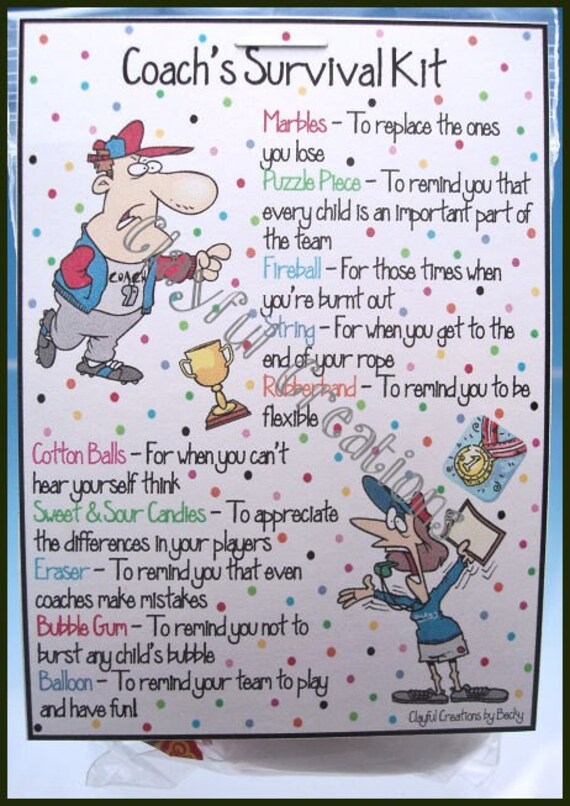 Coach's Survival Kit
Marbles – To replace the ones
you lose
Puzzle Piece – To remind you that
every child is an important part of
the team
Fireball – For those times when
you're burnt out
String – For when you get to the
end of your rope
Rubberband – To remind you to be
flexible
Cotton Balls – For when you can't
hear yourself think
Sweet & Sour Candies – To appreciate
the differences in your players
Eraser – To remind you that even
coaches make mistakes
Bubble Gum – To remind you not to
burst any child's bubble
Balloon – To remind your team to play
and have fun!
COACH
1
Clayful Creations by Becky
Clayful Creations